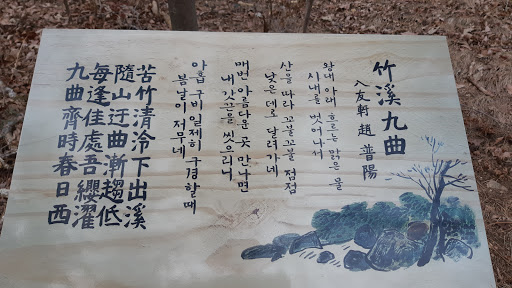 竹溪九曲
八友軒 趙 普陽
왕대 아래 흐르는 맑은 물
시내를 벗어나서
산을 따라 꼬불꼬불 점점
낮은 데로 달려가네
매번 아름다운 곳 만나면
내 갓끈을 씻으리니
아홉 구비 일제히 구경할 때
봄날이 저무네
苦竹清泠下出溪
隨山迂曲漸趨低
每逢佳處吾纓濯
九曲齊時春日西